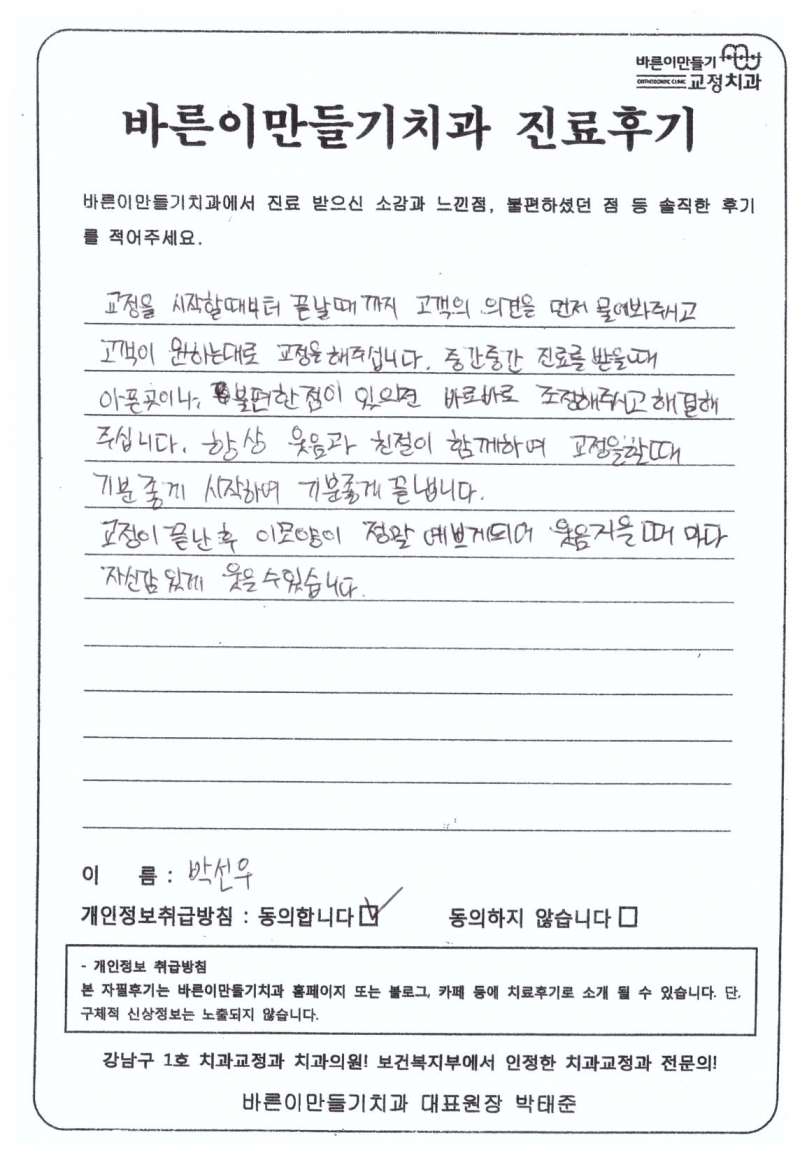 바른이만들기
ORTHODONTIC CLINIC 교정치과
바른이만들기치과 진료후기
바른이만들기치과에서 진료 받으신 소감과 느낀점, 불편하셨던 점 등 솔직한 후기
를 적어주세요.
교정을 시작할때부터 끝날때 까지 고객의 의견을 먼저 물어봐주시고
고객이 원하는대로 교정을 해주십니다. 중간중간 진료를 받을때
아픈곳이나, 불편한점이 있으면 바로바로 조정해주시고 해결해
주십니다. 항상 웃음과 친절이 함께하여 교정을할때
기분 좋게 시작하여 기분좋게 끝냅니다.
교정이 끝난 후 이모양이 정말 예쁘게되어 웃음지을 때 마다
자신감 있게 웃을 수있습니다.
이 름 : 박선우
개인정보취급방침 : 동의합니다 ☑ 동의하지 않습니다 □
- 개인정보 취급방침
본 자필후기는 바른이만들기치과 홈페이지 또는 블로그, 카페 등에 치료후기로 소개 될 수 있습니다. 단,
구체적 신상정보는 노출되지 않습니다.
강남구 1호 치과교정과 치과의원! 보건복지부에서 인정한 치과교정과 전문의!
바른이만들기치과 대표원장 박태준